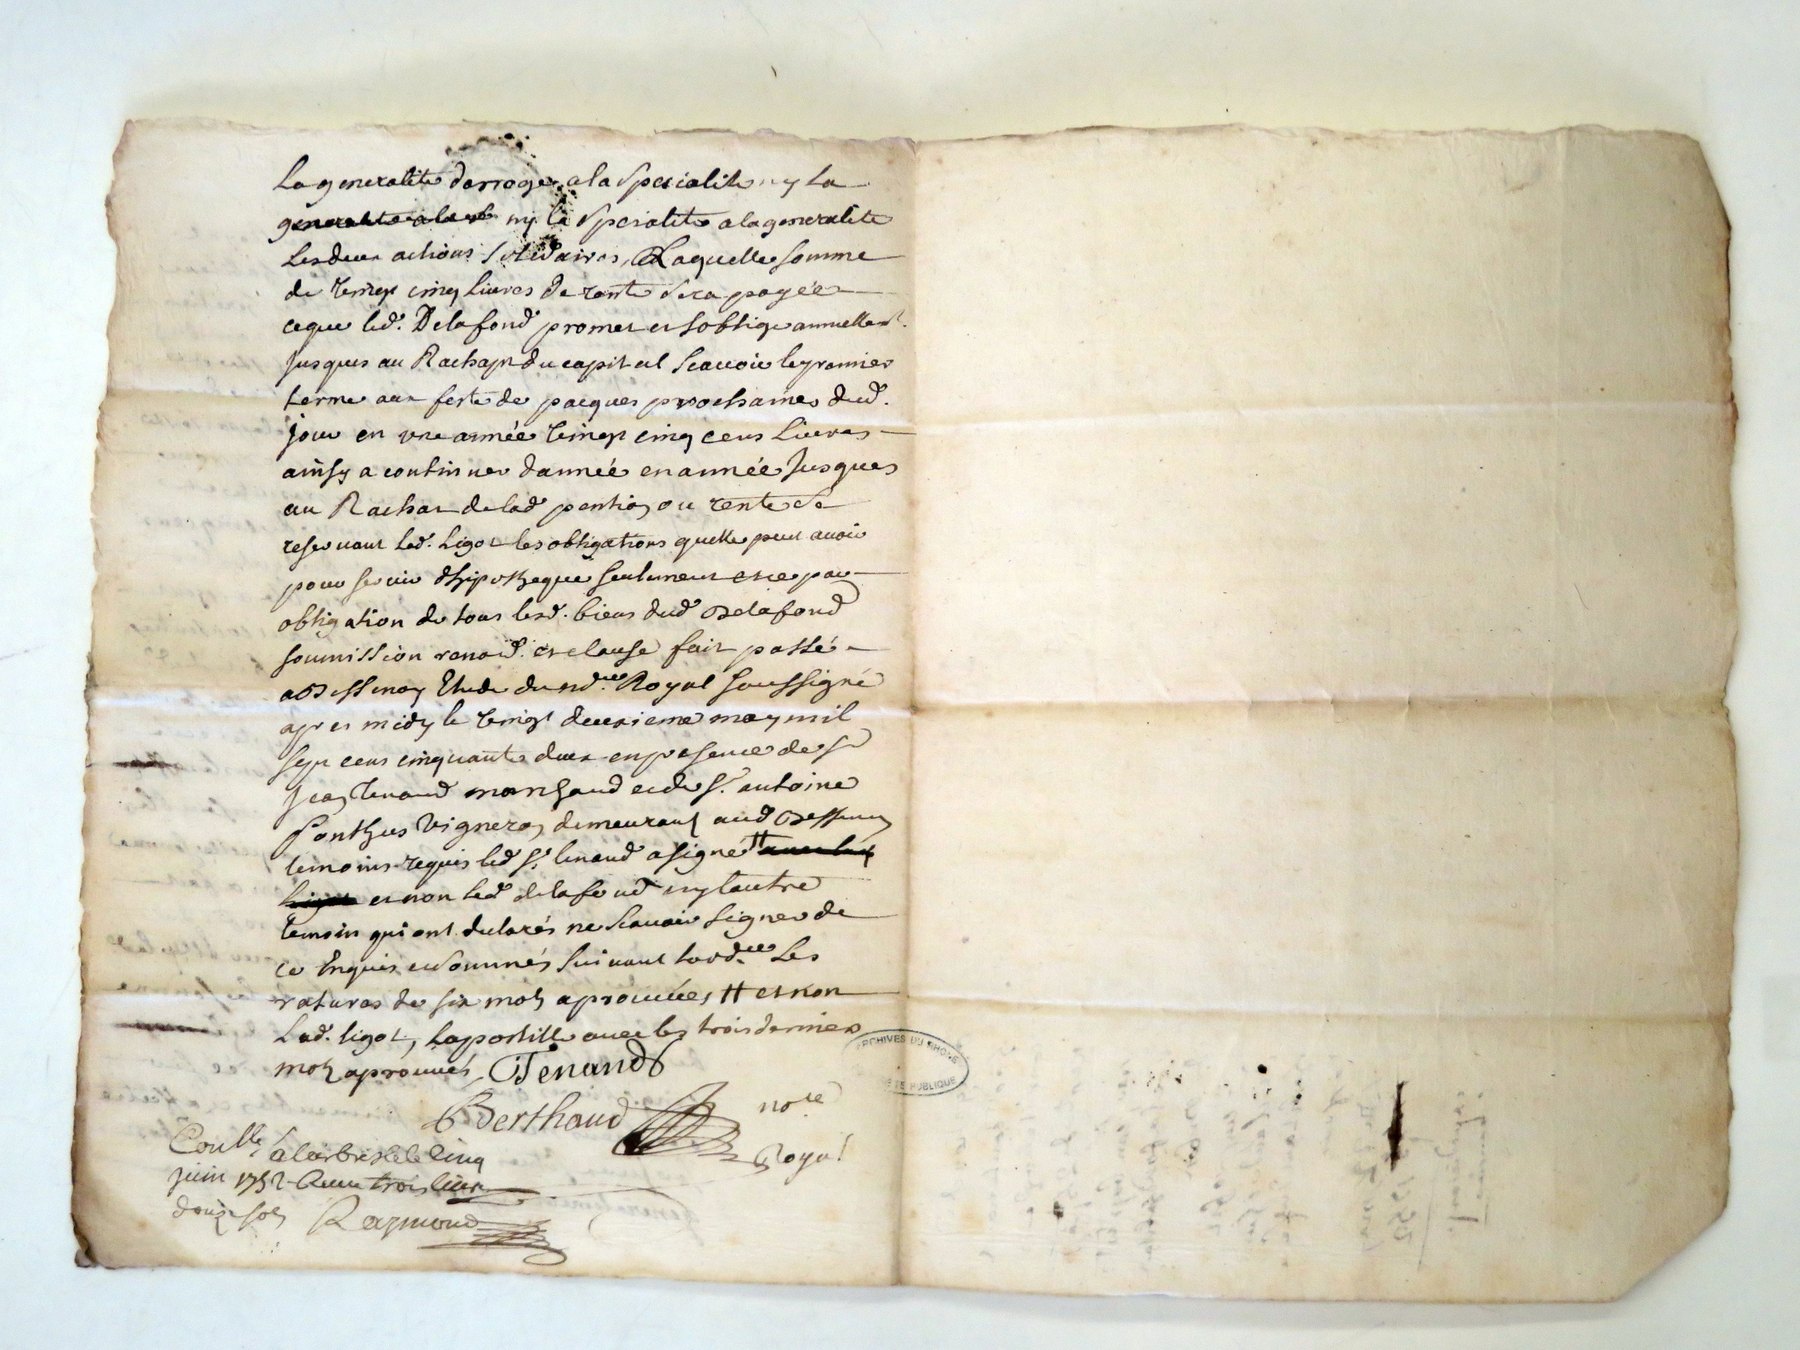 La generalité derroger a la Specialité ny La
generalité a la ny la Speialité a la generalité
Les deux actions Solidaires, Laquelle Somme
de vingt cinq Livres de rente Sera payée
ce que led. Delafond promet et Soblige annuellemt.
jusques au Rachapt du capital Scauoir le premier
terme aux feste de pacques prochaines dud.
jour en vne année vingt cinq cens Livres
ainsy a continuer dannée en année Jusques
au Rachat de lad pention ou rente Se
reseruant lad. Ligot les obligations quelle peut auoir
pour Seruir dhipotheque Seulement et ce par
obligation de tous lesd. biens dud Delafond
Soumission renond. et clause fait passé
a Dessenay Etude du Royal Soussigné
apres midy le vingt deuxieme may mil
Sept cens cinquante deux en presence de Sr
Jean tenand marchand et de Sr. antoine
Ponthus Vigneron demeurant aud
temoins requis led Sr. tenand a signé #
et non led delafond ny lautre
temoin qui ont declarés ne Scauoir Signer de
ce Enquis et Sommés Suiuant lordce Les
ratures de six mots aprouuées # et non
Lad. ligot, Lapostille auec les trois derniers
mots aprouués, Tenand
Berthaud nore
Royal
Conllé a larbresle le cinq
juin 1752 Reçu trois liures
douze sols Raymond
ARCHIVES DU RHONE
PUBLIQUE